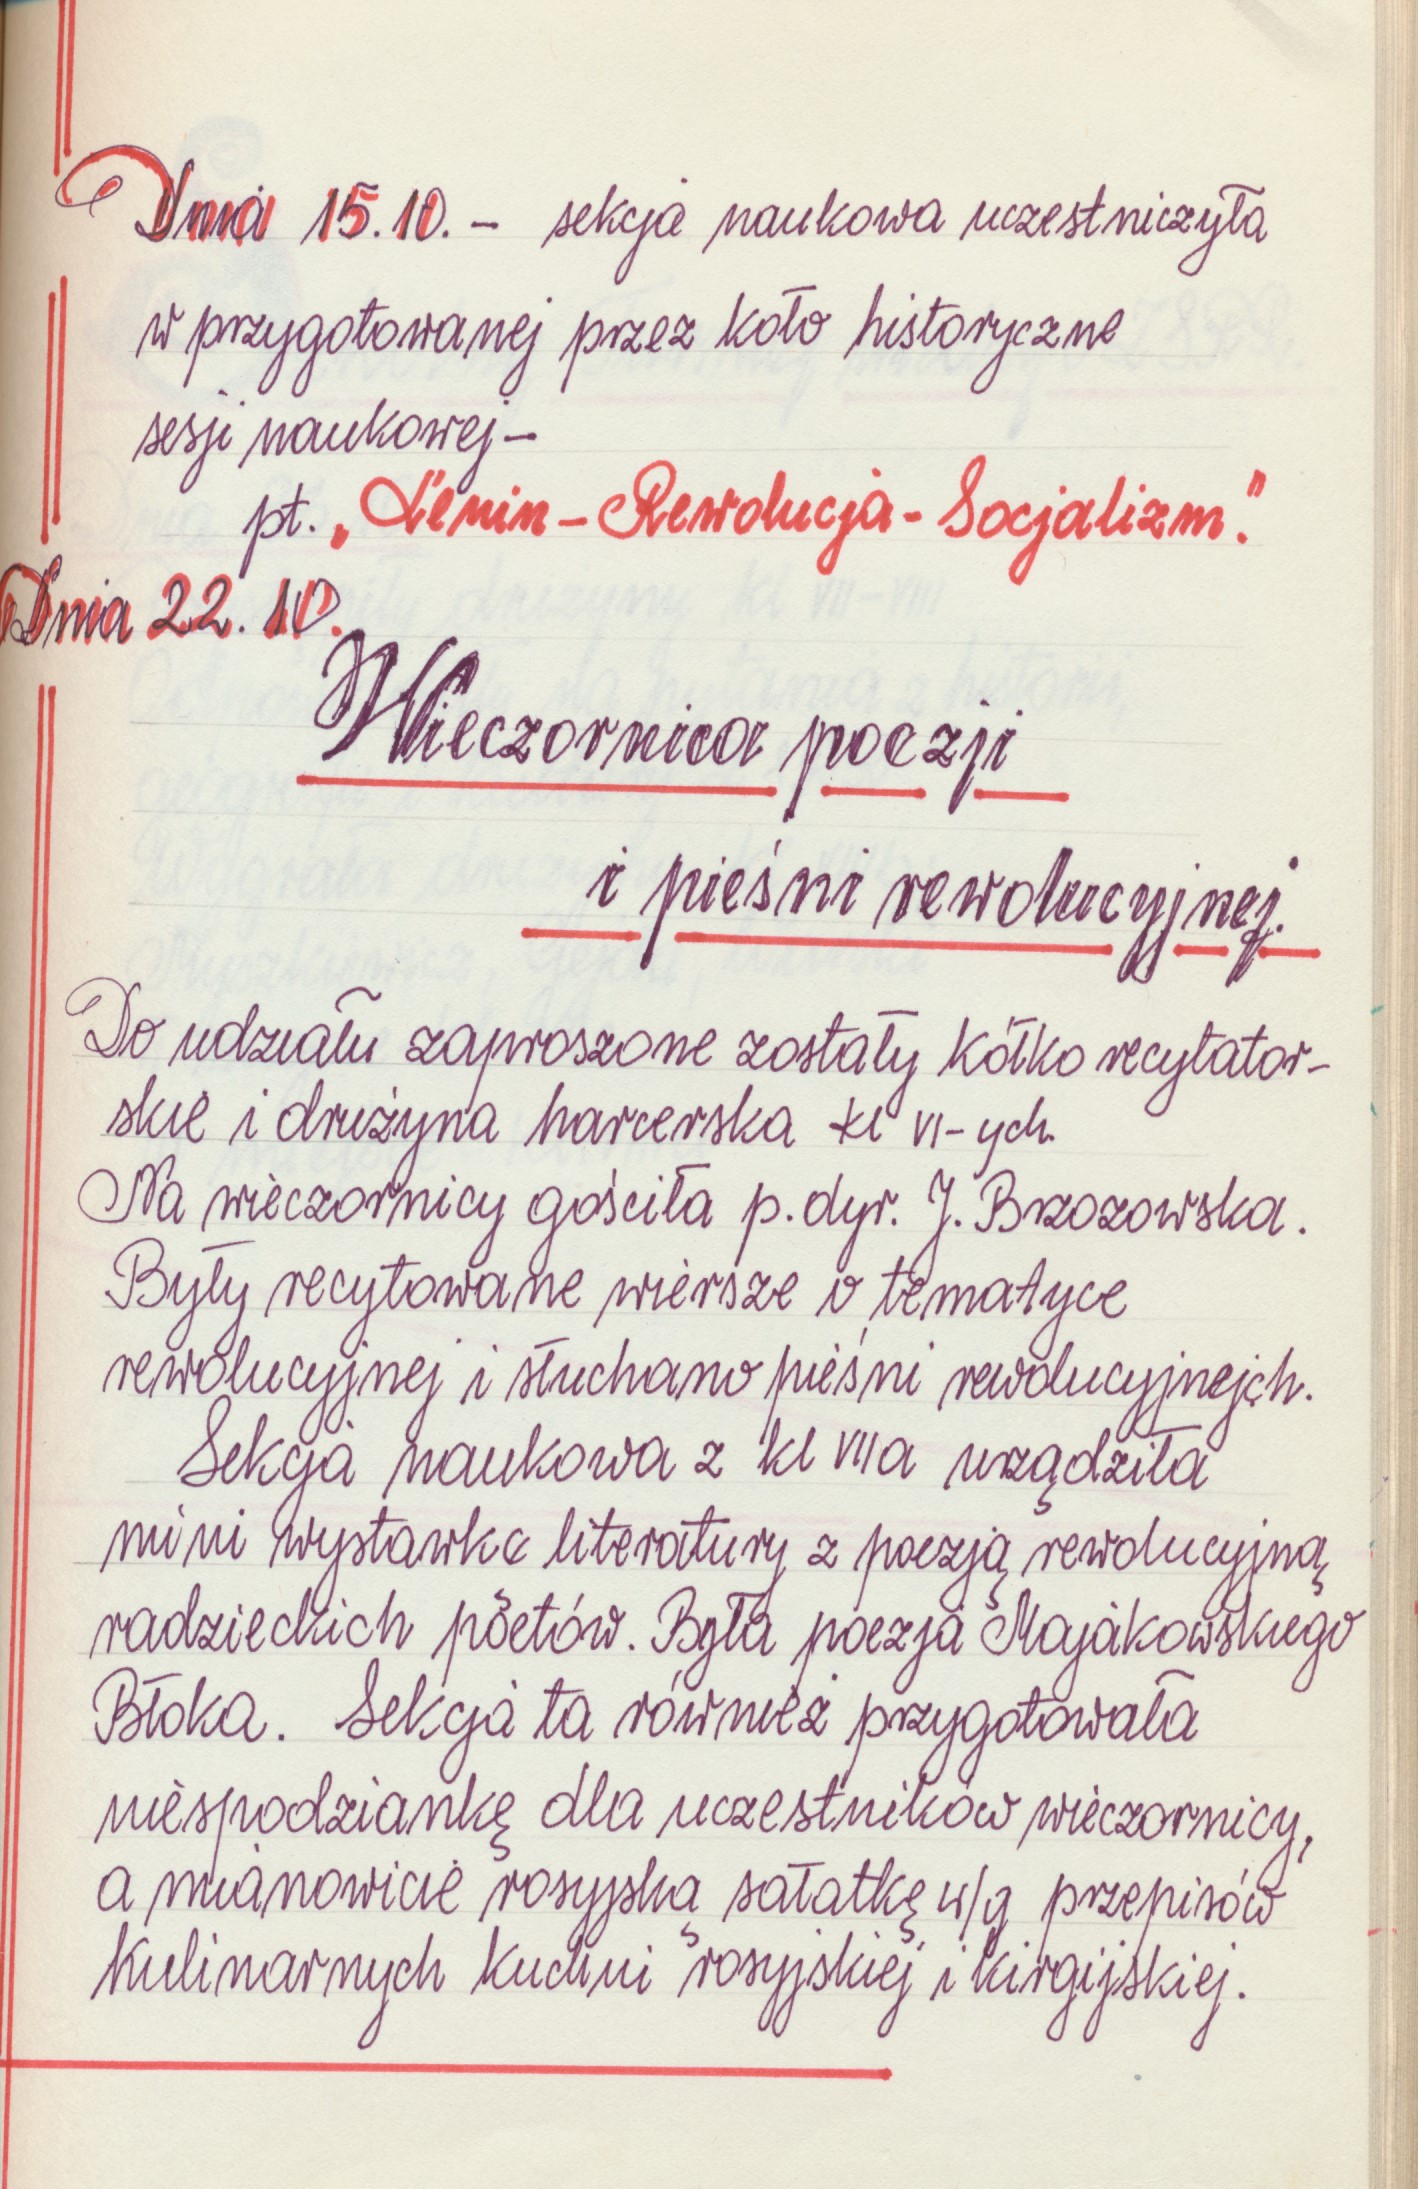 Dnia 15.10. – sekcja naukowa uczestniczyła
w przygotowanej przez koło historyczne
sesji naukowej –
pt. „Lenin – Rewolucja - Socjalizm."
Dnia 22. 10.
Wieczornica poezji
i pieśni rewolucyjnej.
Do udziału zaproszone zostały kółko recytator-
skie i drużyna harcerska kl VI-ych.
Na wieczornicy gościła p. dyr. J. Brzozowska.
Były recytowane wiersze o tematyce
rewolucyjnej i słuchano pieśni rewolucyjnejch.
Sekcja naukowa z kl VII a urządziła
mini wystawkę literatury z poezją rewolucyjną
radzieckich poetów. Była poezja Majakowskiego
Błoka. Sekcja ta również przygotowała
niespodziankę dla uczestników wieczornicy,
a mianowicie rosyjską sałatkę w/g przepisów
kulinarnych kuchni rosyjskiej i kirgijskiej.